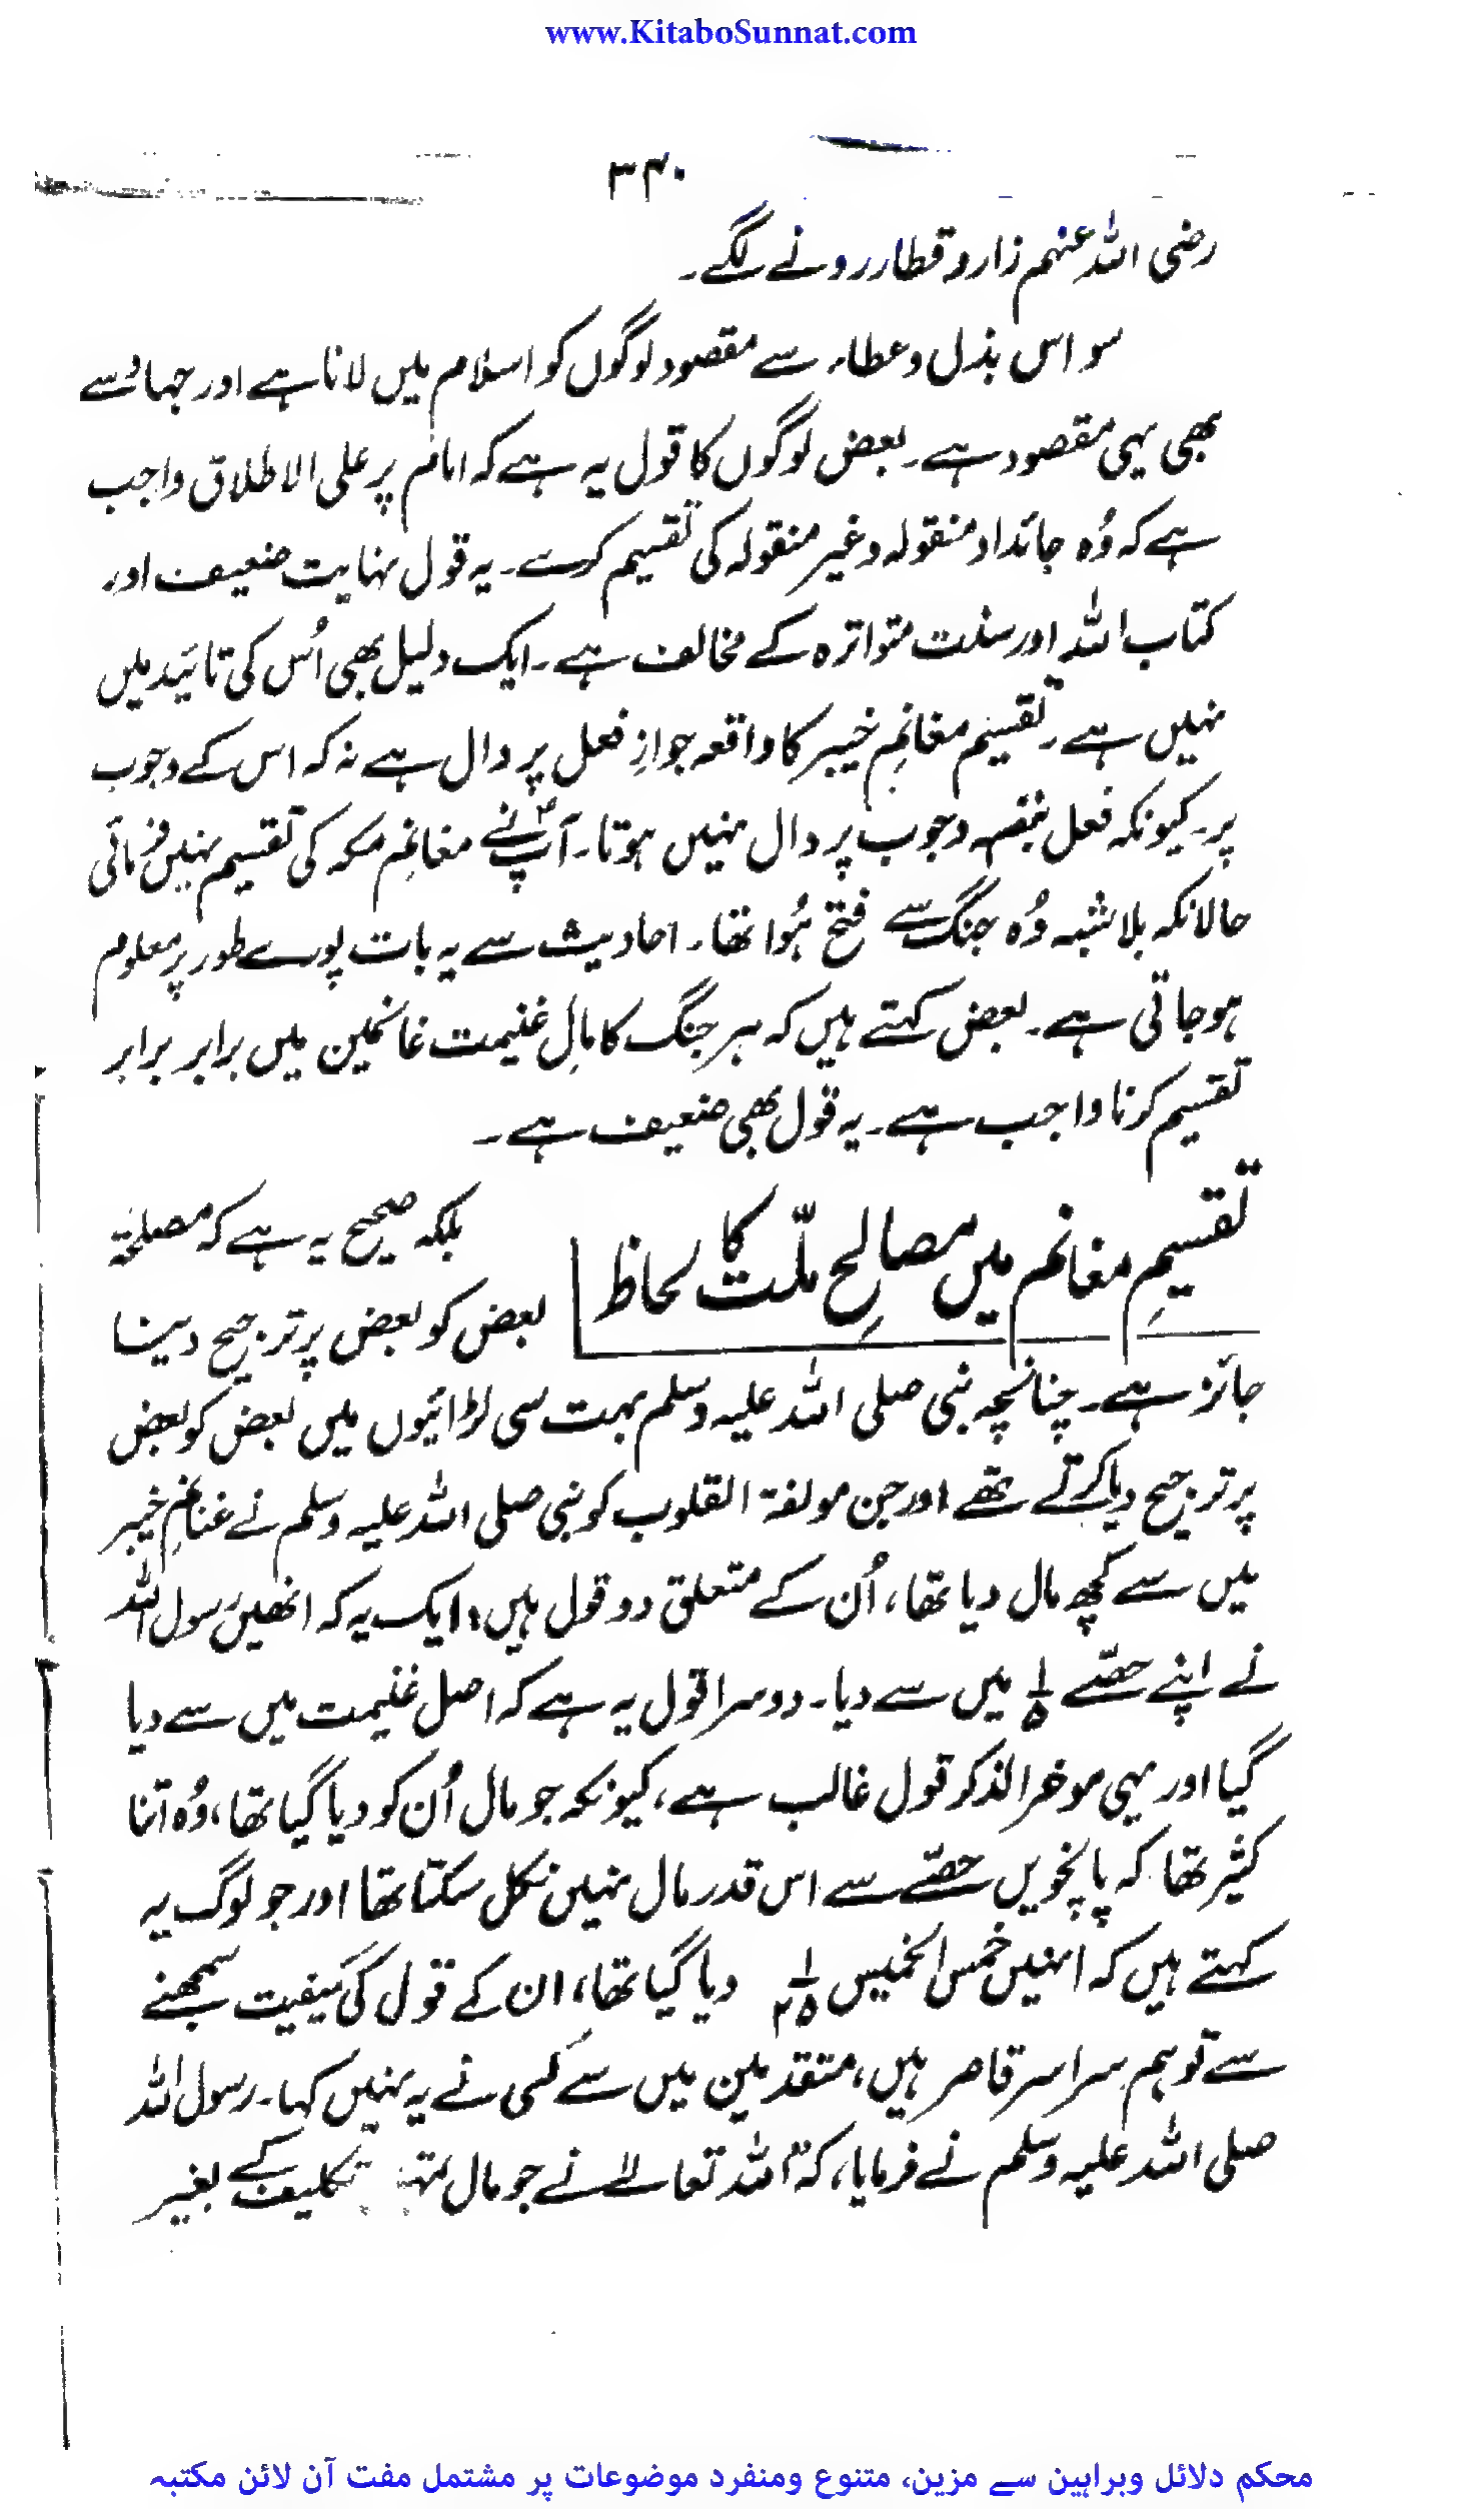 www.KitaboSunnat.com
۳۴۰
رضی اللہ عنہم زار و قطار رونے لگے۔
سو اس بذل و عطاء سے مقصود لوگوں کو اسلام میں لانا ہے اور جہاد سے
بھی یہی مقصود ہے۔ بعض لوگوں کا قول یہ ہے کہ امام پر علی الاطلاق واجب
ہے کہ وُہ جائداد منقولہ وغیر منقولہ کی تقسیم کرے۔ یہ قول نہایت ضعیف اور
کتاب اللہ اور سنت متواترہ کے مخالف ہے۔ ایک دلیل بھی اُس کی تائید میں
نہیں ہے۔ تقسیم مغانمِ خیبر کا واقعہ جوازِ فعل پر دال ہے نہ کہ اس کے وجوب
پر۔ کیونکہ فعل بنفسہ وجوب پر دال نہیں ہوتا۔ آپؐ نے مغانمِ مکہ کی تقسیم نہیں فرمائی
حالانکہ بلاشبہ وُہ جنگ سے فتح ہُوا تھا۔ احادیث سے یہ بات پورے طور پر معلوم
ہوجاتی ہے۔ بعض کہتے ہیں کہ ہر جنگ کا مالِ غنیمت غانمین میں برابر برابر
تقسیم کرنا واجب ہے۔ یہ قول بھی ضعیف ہے۔
تقسیمِ مغانم میں مصالحِ ملّت کا لحاظ
بلکہ صحیح یہ ہے کہ مصلحۃً
بعض کو بعض پر ترجیح دینا
جائز ہے۔ چنانچہ نبی صلی اللہ علیہ وسلم بہت سی لڑائیوں میں بعض کو بعض
پر ترجیح دیا کرتے تھے اور جن مولفۃ القلوب کو نبی صلی اللہ علیہ وسلم نے غنائمِ خیبر
میں سے کچھ مال دیا تھا، اُن کے متعلق دو قول ہیں، ایک یہ کہ انھیں رسول اللہ
نے اپنے حصّے ۱/۵ میں سے دیا۔ دوسرا قول یہ ہے کہ اصل غنیمت میں سے دیا
گیا اور یہی موخر الذکر قول غالب ہے، کیونکہ جو مال اُن کو دیا گیا تھا، وُہ اتنا
کثیر تھا کہ پانچویں حصّے سے اس قدر مال نہیں نکل سکتا تھا اور جو لوگ یہ
کہتے ہیں کہ انہیں خمس الخمیس ۱/۲۵ دیا گیا تھا، ان کے قول کی کیفیت سمجھنے
سے تو ہم سراسر قاصر ہیں، متقدمین میں سے کسی نے یہ نہیں کہا۔ رسول اللہ
صلی اللہ علیہ وسلم نے فرمایا، کہ "اللہ تعالےٰ نے جو مال تکلیف کے بغیر
محکم دلائل وبراہین سے مزین، متنوع ومنفرد موضوعات پر مشتمل مفت آن لائن مکتبہ